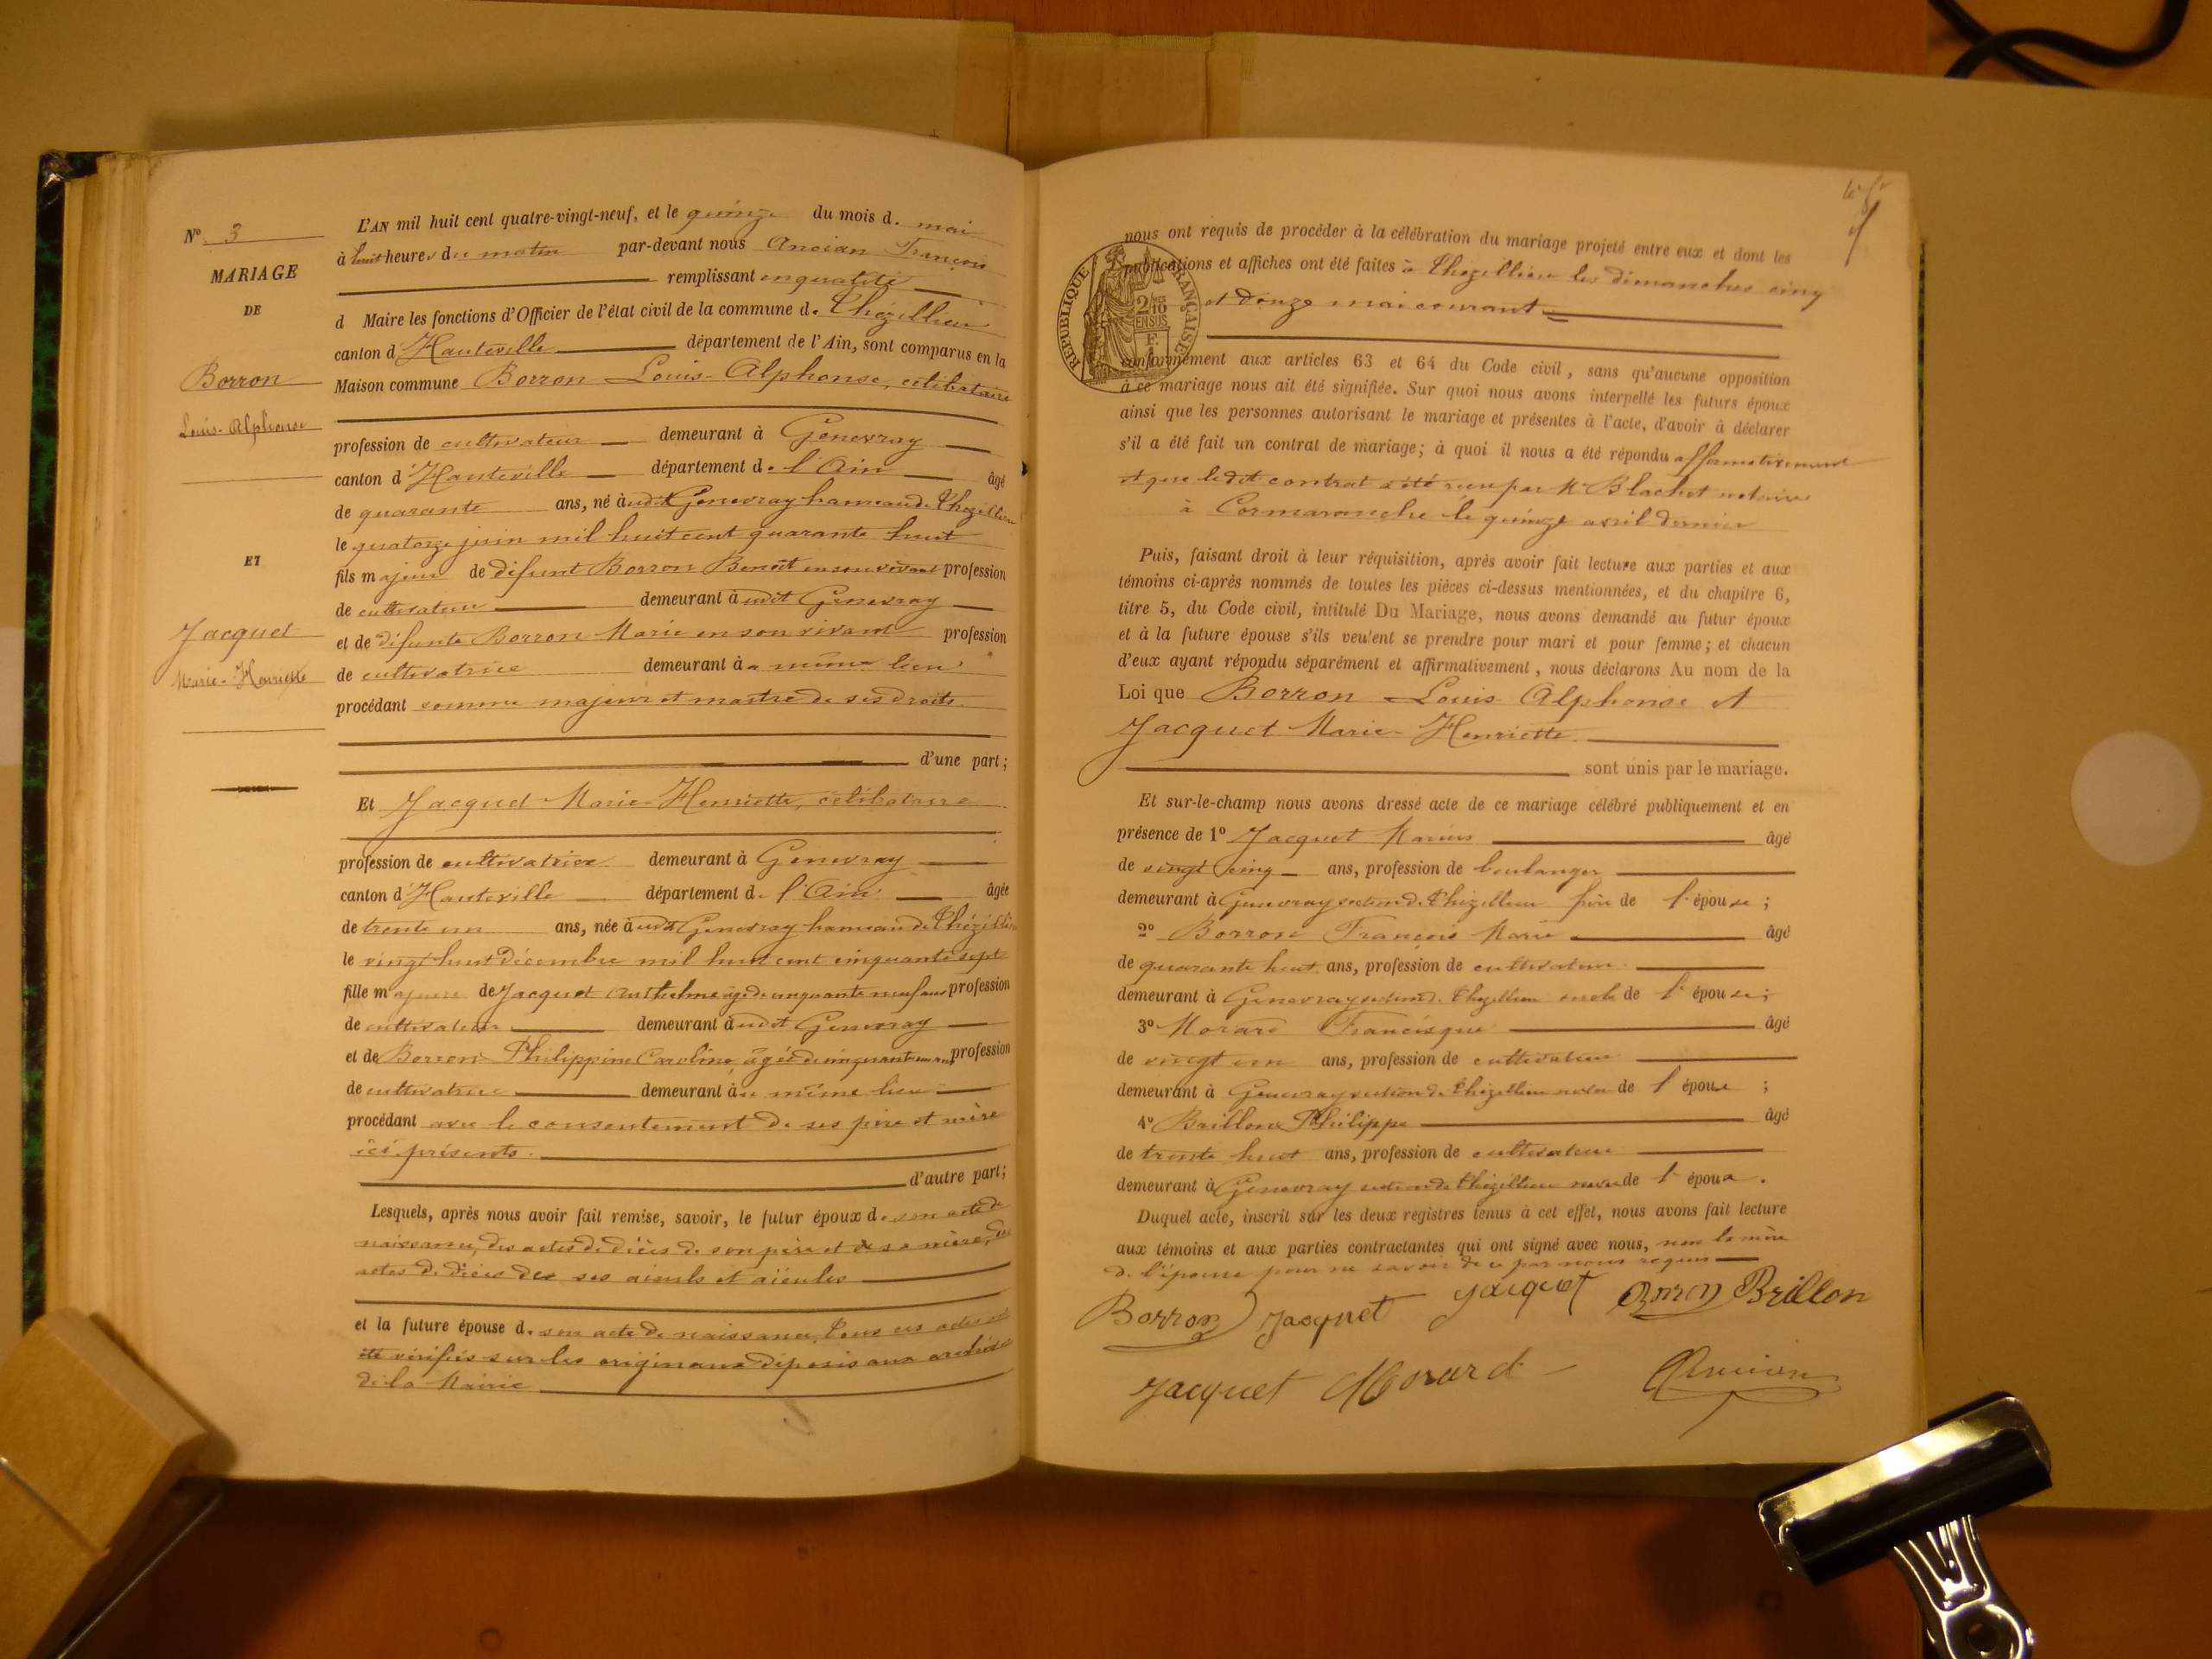 N° 3
MARIAGE
DE
Borron
Louis-Alphonse
ET
Jacquet
Marie-Henriette
L'AN mil huit cent quatre-vingt-neuf, et le quinze du mois d. mai
à huit heures du matin par-devant nous Ancian François
remplissant en qualité
d Maire les fonctions d'Officier de l'état civil de la commune d. Thézillieu
canton d'Hauteville département de l'Ain, sont comparus en la
Maison commune Borron Louis-Alphonse, célibataire
profession de cultivateur demeurant à Genevray
canton d'Hauteville département d. l'Ain âgé
de quarante ans, né à udit Genevray hameau de Thézillieu
le quatorze juin mil huit cent quarante huit
fils majeur de défunt Borron Benoît en son vivant profession
de cultivateur demeurant à udit Genevray
et de défunte Borron Marie en son vivant profession
de cultivatrice demeurant à u même lieu
procédant comme majeur et maître de ses droits
d'une part;
Et Jacquet Marie-Henriette, célibataire
profession de cultivatrice demeurant à Genevray
canton d'Hauteville département d. l'Ain âgée
de trente un ans, née à udit Genevray hameau de Thézillieu
le vingt huit décembre mil huit cent cinquante sept
fille majeure de Jacquet Anthelme âgé de cinquante neuf ans profession
de cultivateur demeurant à udit Genevray
et de Borron Philippine Caroline âgée de cinquante ans profession
de cultivatrice demeurant à u même lieu
procédant avec le consentement de ses père et mère
ici présents.
d'autre part;
Lesquels, après nous avoir fait remise, savoir, le futur époux d. son acte de
naissance, des actes de décès de son père et de sa mère, des
actes de décès de ses aïeuls et aïeules
et la future épouse d. son acte de naissance. Tous ces actes ont
été vérifiés sur les originaux déposés aux archives
de la Mairie
nous ont requis de procéder à la célébration du mariage projeté entre eux et dont les
publications et affiches ont été faites à Thézillieu les dimanches cinq
et douze mai courant
RÉPUBLIQUE FRANÇAISE
2/10
EN SUS
conformément aux articles 63 et 64 du Code civil, sans qu'aucune opposition
à ce mariage nous ait été signifiée. Sur quoi nous avons interpellé les futurs époux
ainsi que les personnes autorisant le mariage et présentes à l'acte, d'avoir à déclarer
s'il a été fait un contrat de mariage; à quoi il nous a été répondu affirmativement
et que ledit contrat a été reçu par Me Blachet notaire
à Cormaranche le quinze avril dernier
Puis, faisant droit à leur réquisition, après avoir fait lecture aux parties et aux
témoins ci-après nommés de toutes les pièces ci-dessus mentionnées, et du chapitre 6,
titre 5, du Code civil, intitulé Du Mariage, nous avons demandé au futur époux
et à la future épouse s'ils veulent se prendre pour mari et pour femme; et chacun
d'eux ayant répondu séparément et affirmativement, nous déclarons Au nom de la
Loi que Borron Louis-Alphonse et
Jacquet Marie-Henriette
sont unis par le mariage.
Et sur-le-champ nous avons dressé acte de ce mariage célébré publiquement et en
présence de 1° Jacquet Marius âgé
de vingt cinq ans, profession de boulanger
demeurant à Genevray section de Thézillieu frère de l'épouse;
2° Borron François Marie âgé
de quarante huit ans, profession de cultivateur
demeurant à Genevray section de Thézillieu oncle de l'épouse;
3° Morard Francisque âgé
de vingt un ans, profession de cultivateur
demeurant à Genevray section de Thézillieu de l'époux;
4° Brillon Philippe âgé
de trente huit ans, profession de cultivateur
demeurant à Genevray section de Thézillieu de l'époux.
Duquel acte, inscrit sur les deux registres tenus à cet effet, nous avons fait lecture
aux témoins et aux parties contractantes qui ont signé avec nous, non la mère
de l'épouse pour ne savoir de ce par nous requis
Borron Jacquet Jacquet Borron Brillon
Jacquet Morard Ancian